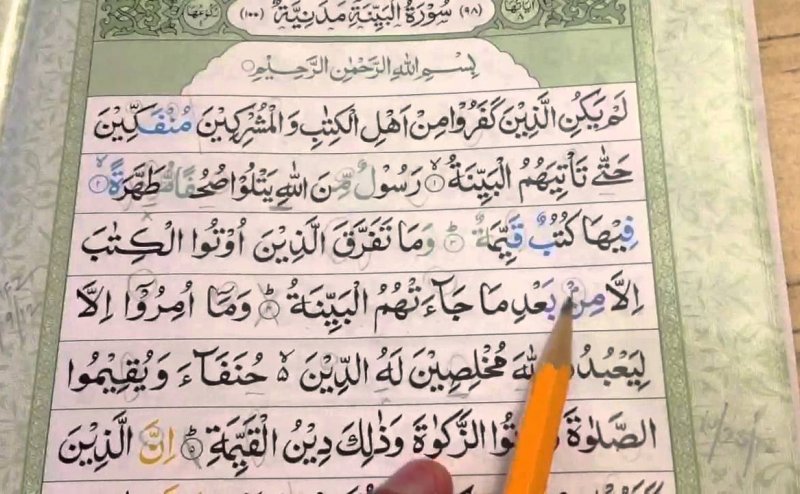 (٩٨) سُوْرَةُ الْبَيِّنَةِ مَدَنِيَّةٌ (١٠٠)
بِسْمِ اللهِ الرَّحْمٰنِ الرَّحِيْمِ
لَمْ يَكُنِ الَّذِيْنَ كَفَرُوْا مِنْ اَهْلِ الْكِتٰبِ وَ الْمُشْرِكِيْنَ مُنْفَكِّيْنَ
حَتّٰى تَاْتِيَهُمُ الْبَيِّنَةُ ۙ‏ ١ رَسُوْلٌ مِّنَ اللهِ يَتْلُوْا صُحُفًا مُّطَهَّرَةً ۙ‏ ٢
فِيْهَا كُتُبٌ قَيِّمَةٌ ؕ‏ ٣ وَمَا تَفَرَّقَ الَّذِيْنَ اُوْتُوا الْكِتٰبَ
اِلَّا مِنْۢ بَعْدِ مَا جَآءَتْهُمُ الْبَيِّنَةُ ؕ‏ ٤ وَمَاۤ اُمِرُوْۤا اِلَّا
لِيَعْبُدُ اللهَ مُخْلِصِيْنَ لَهُ الدِّيْنَ ۙ۬ حُنَفَآءَ وَ يُقِيْمُوا
الصَّلٰوةَ تُوا الزَّكٰوةَ وَذٰلِكَ دِيْنُ الْقَيِّمَةِ ؕ‏ ٥ اِنَّ الَّذِيْنَ